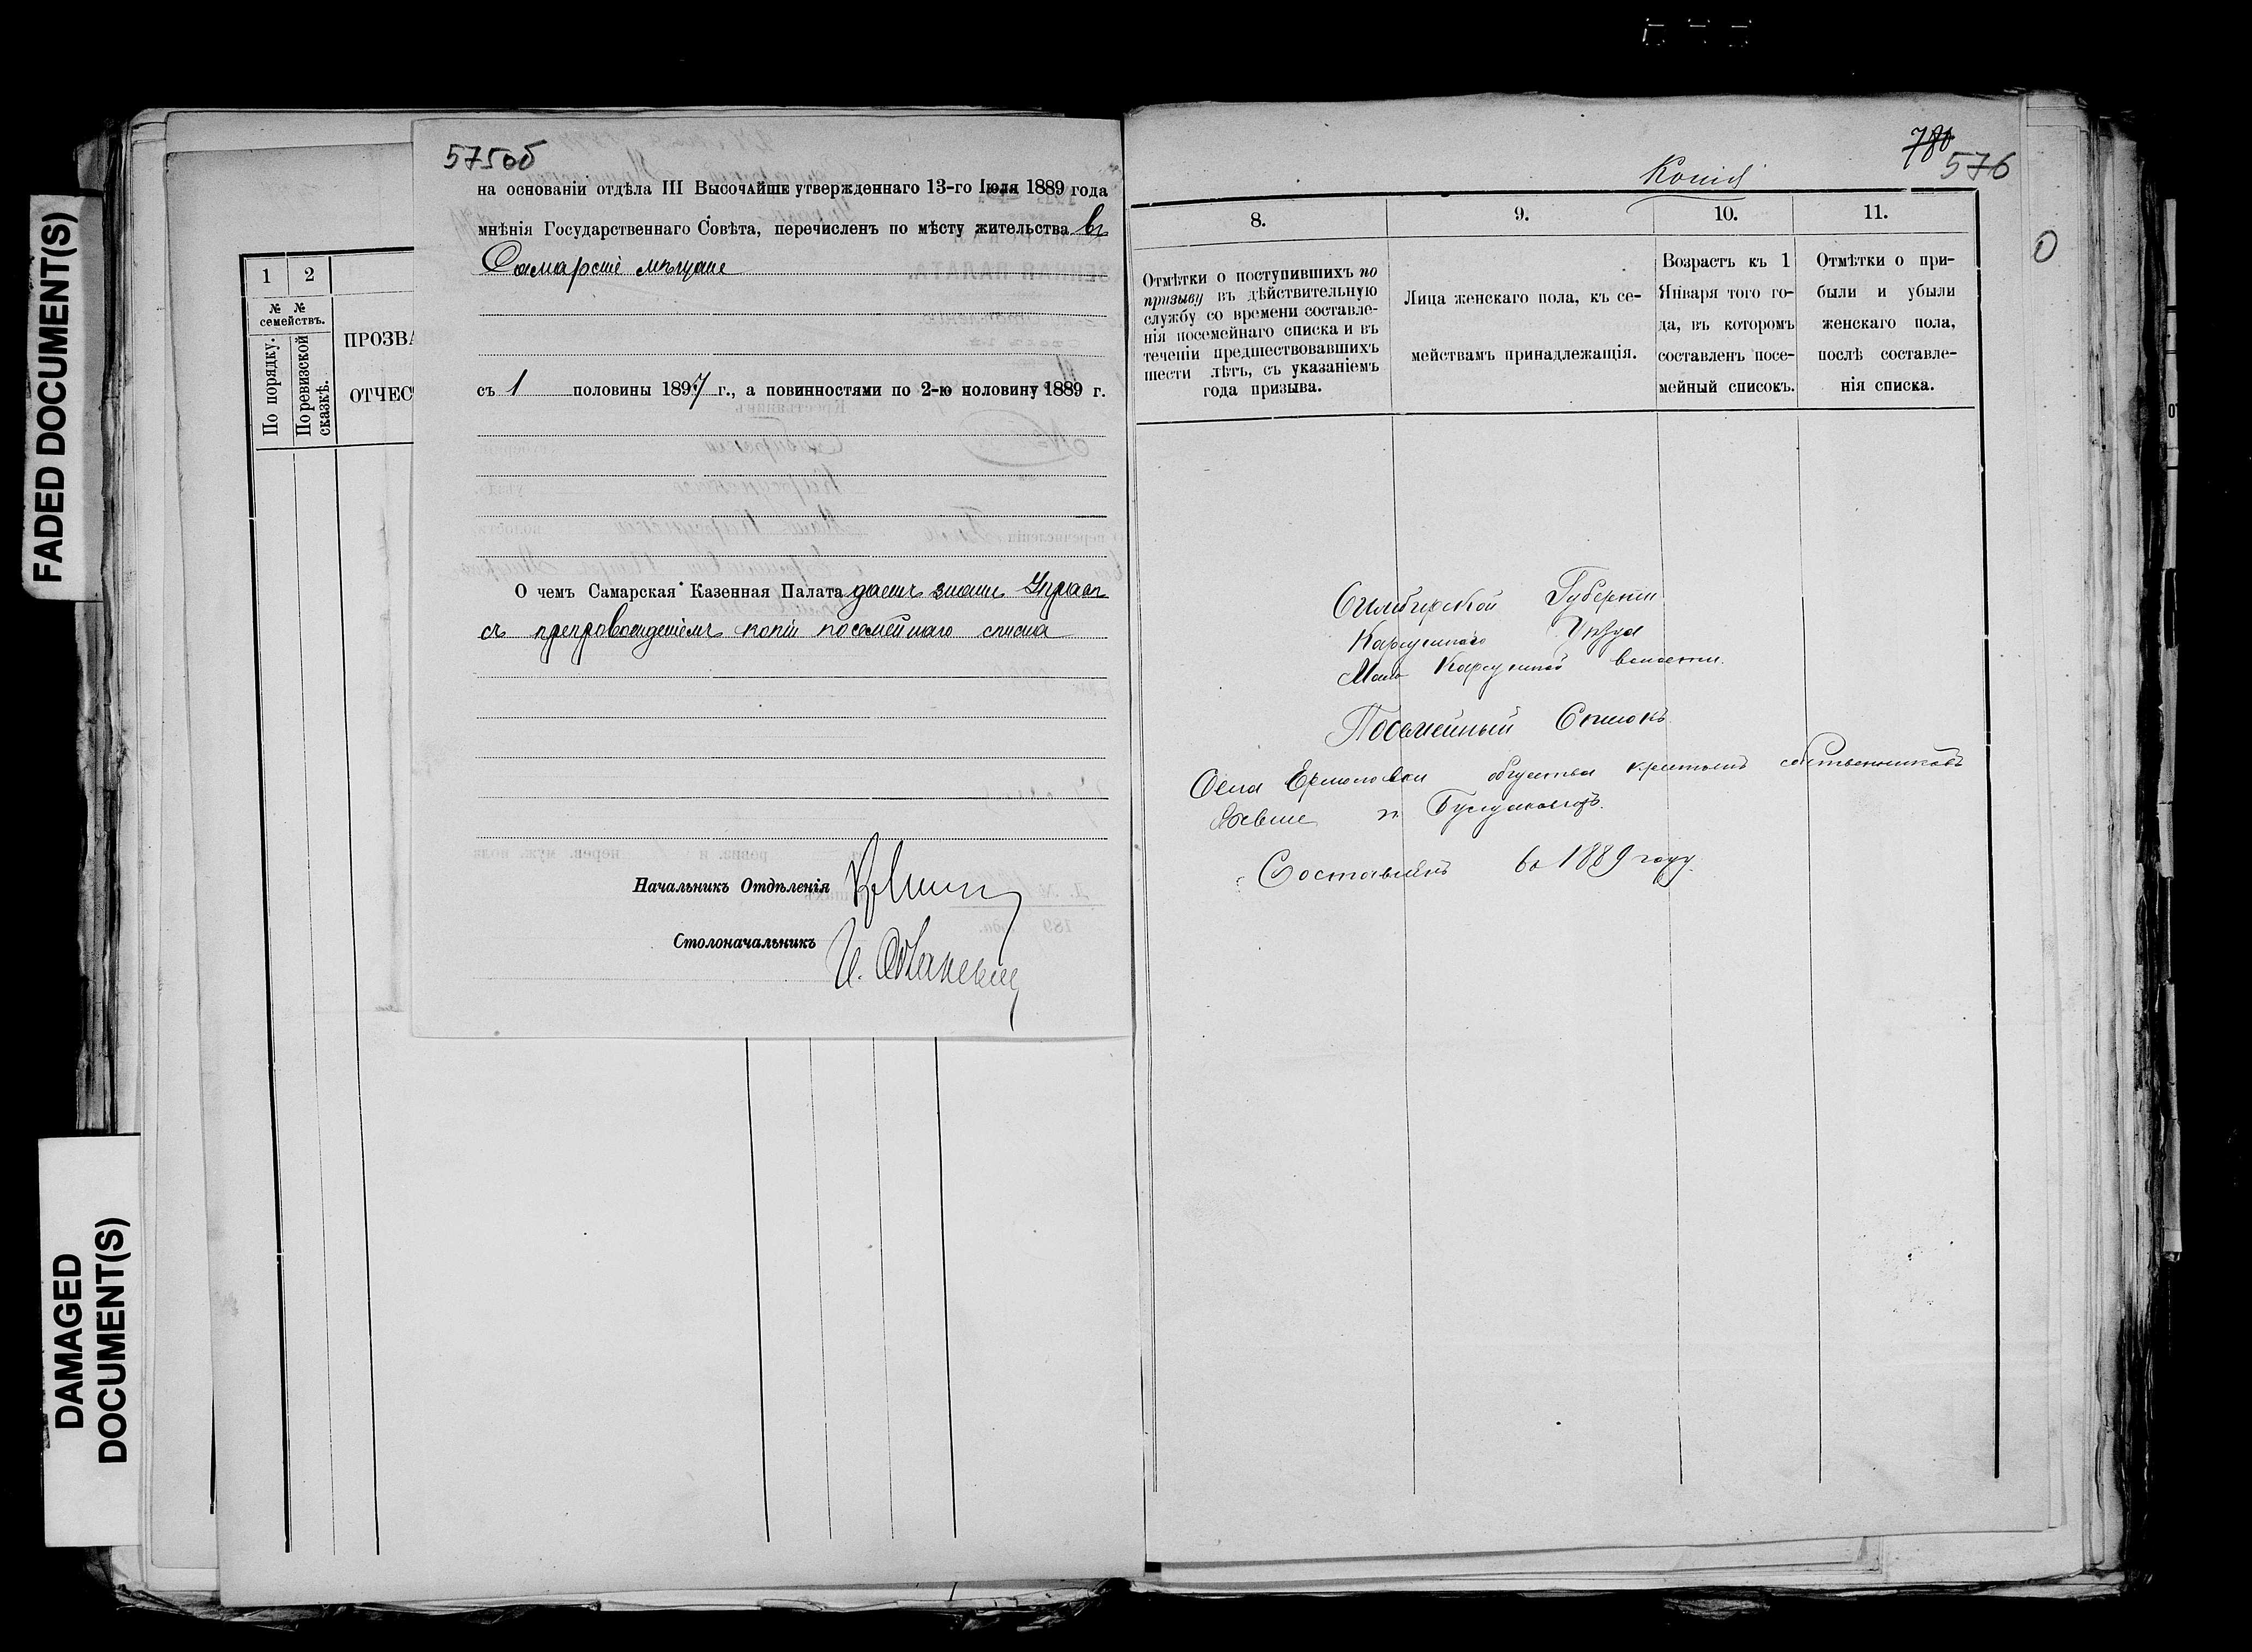 FADED DOCUMENT(S)
DAMAGED
DOCUMENT(S)
1
2
№ №
семействъ.
По порядку.
По ревизской
сказкѣ.
ПРОЗВА
ОТЧЕС
575об
на основаніи отдѣла III Высочайше утвержденнаго 13-го Іюля 1889 года
мнѣнія Государственнаго Совѣта, перечисленъ по мѣсту жительства въ
Самарскіе мѣщане
съ 1 половины 1897 г., а повинностями по 2-ю половину 1889 г.
О чемъ Самарская Казенная Палата даетъ знать Управѣ
съ препровожденіемъ копіи посемейнаго списка
Начальникъ Отдѣленія
Столоначальникъ
780
576
Копія
8.
9.
10.
11.
Отмѣтки о поступившихъ по
призыву въ дѣйствительную
службу со времени составле-
нія посемейнаго списка и въ
теченіи предшествовавшихъ
шести лѣтъ, съ указаніемъ
года призыва.
Лица женскаго пола, къ се-
мействамъ принадлежащія.
Возрастъ къ 1
Января того го-
да, въ которомъ
составленъ посе-
мейный списокъ.
Отмѣтки о при-
были и убыли
женскаго пола,
послѣ составле-
нія списка.
0
Симбирской Губерніи
Карсунского Уѣзда
Мало Карсунской волости.
Посемейный Списокъ
Села Ермоловки общества крестьянъ собственниковъ
Составленъ въ 1889 году.